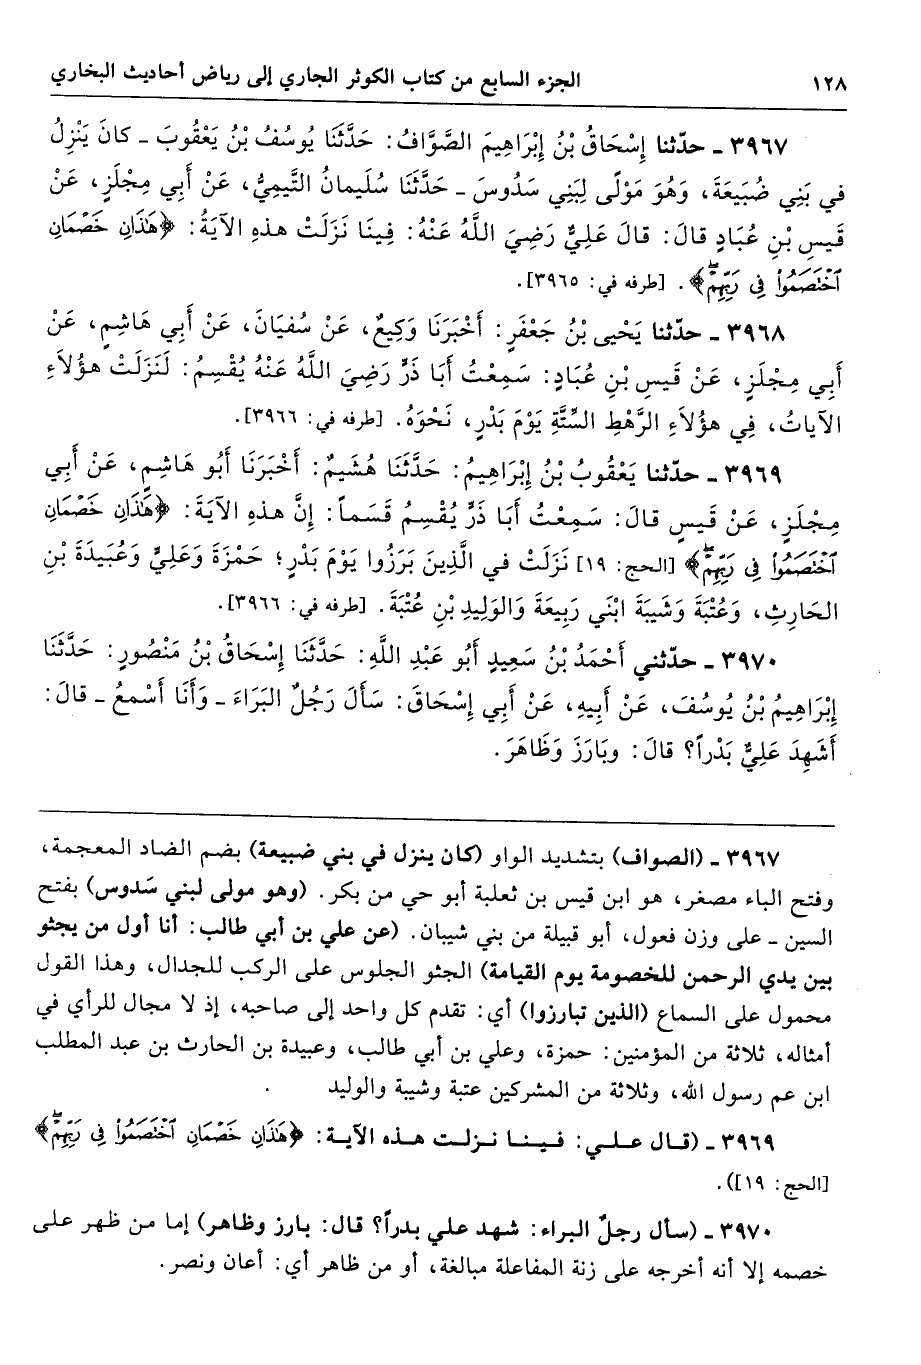 ١٢٨ الجزء السابع من كتاب الكوثر الجاري إلى رياض أحاديث البخاري
٣٩٦٧ ـ حدّثنا إِسْحَاقُ بْنُ إِبْرَاهِيمَ الصَّوَّافُ: حَدَّثَنَا يُوسُفُ بْنُ يَعْقُوبَ ـ كانَ يَنْزِلُ
في بَنِي ضُبَيعَةَ، وَهُوَ مَوْلًى لِبَنِي سَدُوسَ ـ حَدَّثَنَا سُلَيمانُ التَّيمِيُّ، عَنْ أَبِي مِجْلَزٍ، عَنْ
قَيسِ بْنِ عُبَادٍ قالَ: قالَ عَلِيٌّ رَضِيَ اللَّهُ عَنْهُ: فِينَا نَزَلَتْ هذهِ الآيَةُ: ﴿هَٰذَانِ خَصْمَانِ
ٱخْتَصَمُوا۟ فِى رَبِّهِمْ ۖ﴾. [طرفه في: ٣٩٦٥].
٣٩٦٨ ـ حدّثنا يَحْيى بْنُ جَعْفَرٍ: أَخْبَرَنَا وَكِيعٌ، عَنْ سُفيَانَ، عَنْ أَبِي هَاشِمٍ، عَنْ
أَبِي مِجْلَزٍ، عَنْ قَيسِ بْنِ عُبَادٍ: سَمِعْتُ أَبَا ذَرٍّ رَضِيَ اللَّهُ عَنْهُ يُقْسِمُ: لَنَزَلَتْ هؤُلَاءِ
الآيَاتُ، فِي هؤُلَاءِ الرَّهْطِ السِّتَّةِ يَوْمَ بَدْرٍ، نَحْوَهُ. [طرفه في: ٣٩٦٦].
٣٩٦٩ ـ حدّثنا يَعْقُوبُ بْنُ إِبْرَاهِيمُ: حَدَّثَنَا هُشَيمٌ: أَخْبَرَنَا أَبُو هَاشِمٍ، عَنْ أَبِي
مِجْلَزٍ، عَنْ قَيسٍ قالَ: سَمِعْتُ أَبَا ذَرٍّ يُقْسِمُ قَسَماً: إِنَّ هذهِ الآيَةَ: ﴿هَٰذَانِ خَصْمَانِ
ٱخْتَصَمُوا۟ فِى رَبِّهِمْ ۖ﴾ [الحج: ١٩] نَزَلَتْ في الَّذِينَ بَرَزُوا يَوْمَ بَدْرٍ؛ حَمْزَةَ وَعَلِيٍّ وَعُبَيدَةَ بْنِ
الحَارِثِ، وَعُتْبَةَ وَشَيبَةَ ابْنَي رَبِيعَةَ وَالوَلِيدِ بْنِ عُتْبَةَ. [طرفه في: ٣٩٦٦].
٣٩٧٠ ـ حدّثني أَحْمَدُ بْنُ سَعِيدٍ أَبُو عَبْدِ اللَّهِ: حَدَّثَنَا إِسْحَاقُ بْنُ مَنْصُورٍ: حَدَّثَنَا
إِبْرَاهِيمُ بْنُ يُوسُفَ، عَنْ أَبِيهِ، عَنْ أَبِي إِسْحَاقَ: سَأَلَ رَجُلٌ البَرَاءَ ـ وَأَنَا أَسْمَعُ ـ قالَ:
أَشَهِدَ عَلِيٌّ بَدْراً؟ قالَ: وبَارَزَ وَظَاهَرَ.
٣٩٦٧ ـ (الصواف) بتشديد الواو (كان ينزل في بني ضبيعة) بضم الضاد المعجمة،
وفتح الباء مصغر، هو ابن قيس بن ثعلبة أبو حي من بكر. (وهو مولى لبني سَدوس) بفتح
السين ـ على وزن فعول، أبو قبيلة من بني شيبان. (عن علي بن أبي طالب: أنا أول من يجثو
بين يدي الرحمن للخصومة يوم القيامة) الجثو الجلوس على الركب للجدال، وهذا القول
محمول على السماع (الذين تبارزوا) أي: تقدم كل واحد إلى صاحبه، إذ لا مجال للرأي في
أمثاله، ثلاثة من المؤمنين: حمزة، وعلي بن أبي طالب، وعبيدة بن الحارث بن عبد المطلب
ابن عم رسول الله، وثلاثة من المشركين عتبة وشيبة والوليد
٣٩٦٩ ـ (قال علي: فينا نزلت هذه الآية: ﴿هَٰذَانِ خَصْمَانِ ٱخْتَصَمُوا۟ فِى رَبِّهِمْ ۖ﴾
[الحج: ١٩]).
٣٩٧٠ ـ (سأل رجلٌ البراء: شهد علي بدراً؟ قال: بارز وظاهر) إما من ظهر على
خصمه إلا أنه أخرجه على زنة المفاعلة مبالغة، أو من ظاهر أي: أعان ونصر.